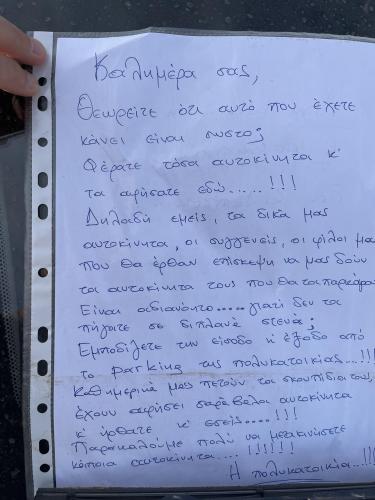 Καλημέρα σας,
Θεωρείτε ότι αυτό που έχετε
κάνει είναι σωστό;
Φέρατε τόσα αυτοκίνητα κ'
τα αφήσατε εδώ.....!!!
Δηλαδή εμείς, τα δικά μας
αυτοκίνητα, οι συγγενείς, οι φίλοι μας
που θα έρθουν επίσκεψη να μας δουν
τα αυτοκίνητα τους που θα τα παρκάρουν
Είναι αδιανόητο.... γιατί δεν τα
πήγατε σε διπλανά στενά;
Εμποδίζετε την είσοδο κ' έξοδο από
το parking της πολυκατοικίας...!!!
Καθημερινά μας πετούν τα σκουπίδια τους,
έχουν αφήσει σαράβαλα αυτοκίνητα
κ' ήρθατε κ' εσείς....!!!
Παρακαλούμε πολύ να μετακινήσετε
κάποια αυτοκίνητα....!!!!!!
Η πολυκατοικία...!!!